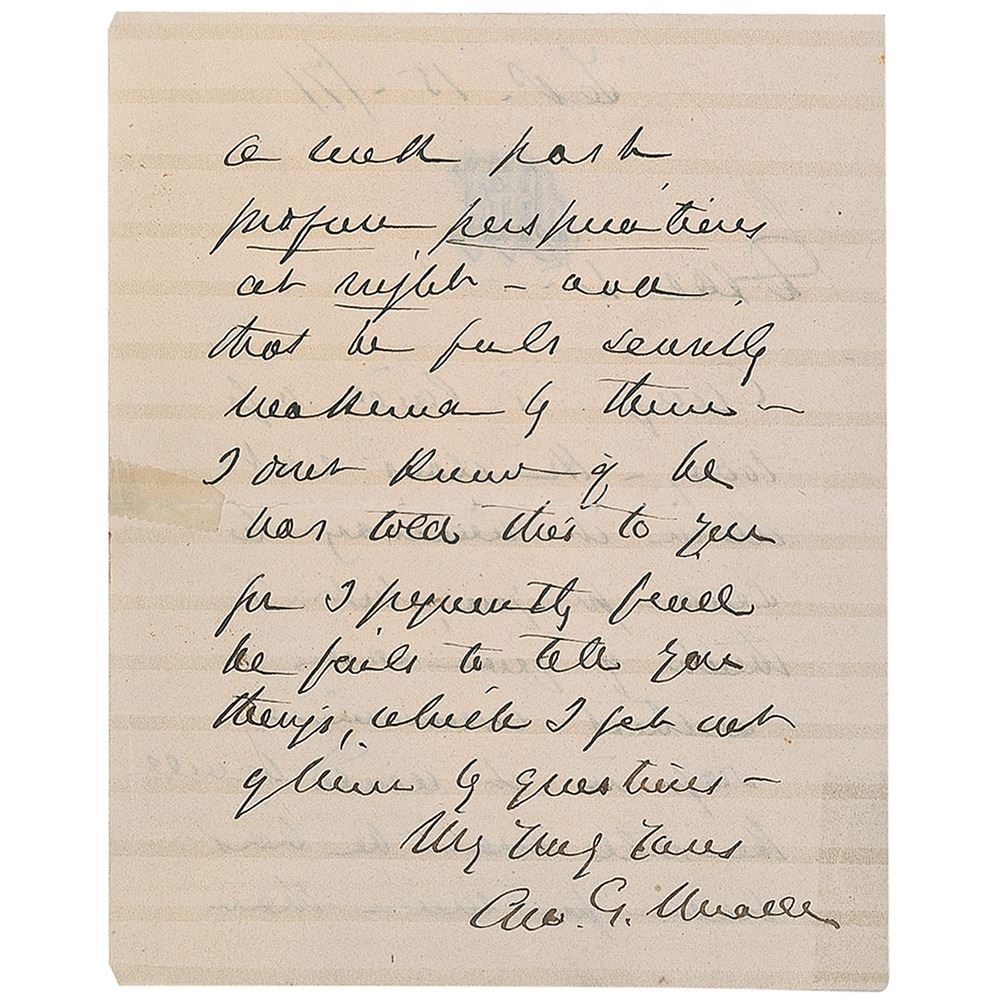 a week past
profuse perspirations
at night – and
that he feels sensibly
weakened by them –
I dont know if he
has told this to you
for I frequently find
he fails to tell you
things, which I get out
of him by questions –
Very Truly Yours
Geo. G. Meade